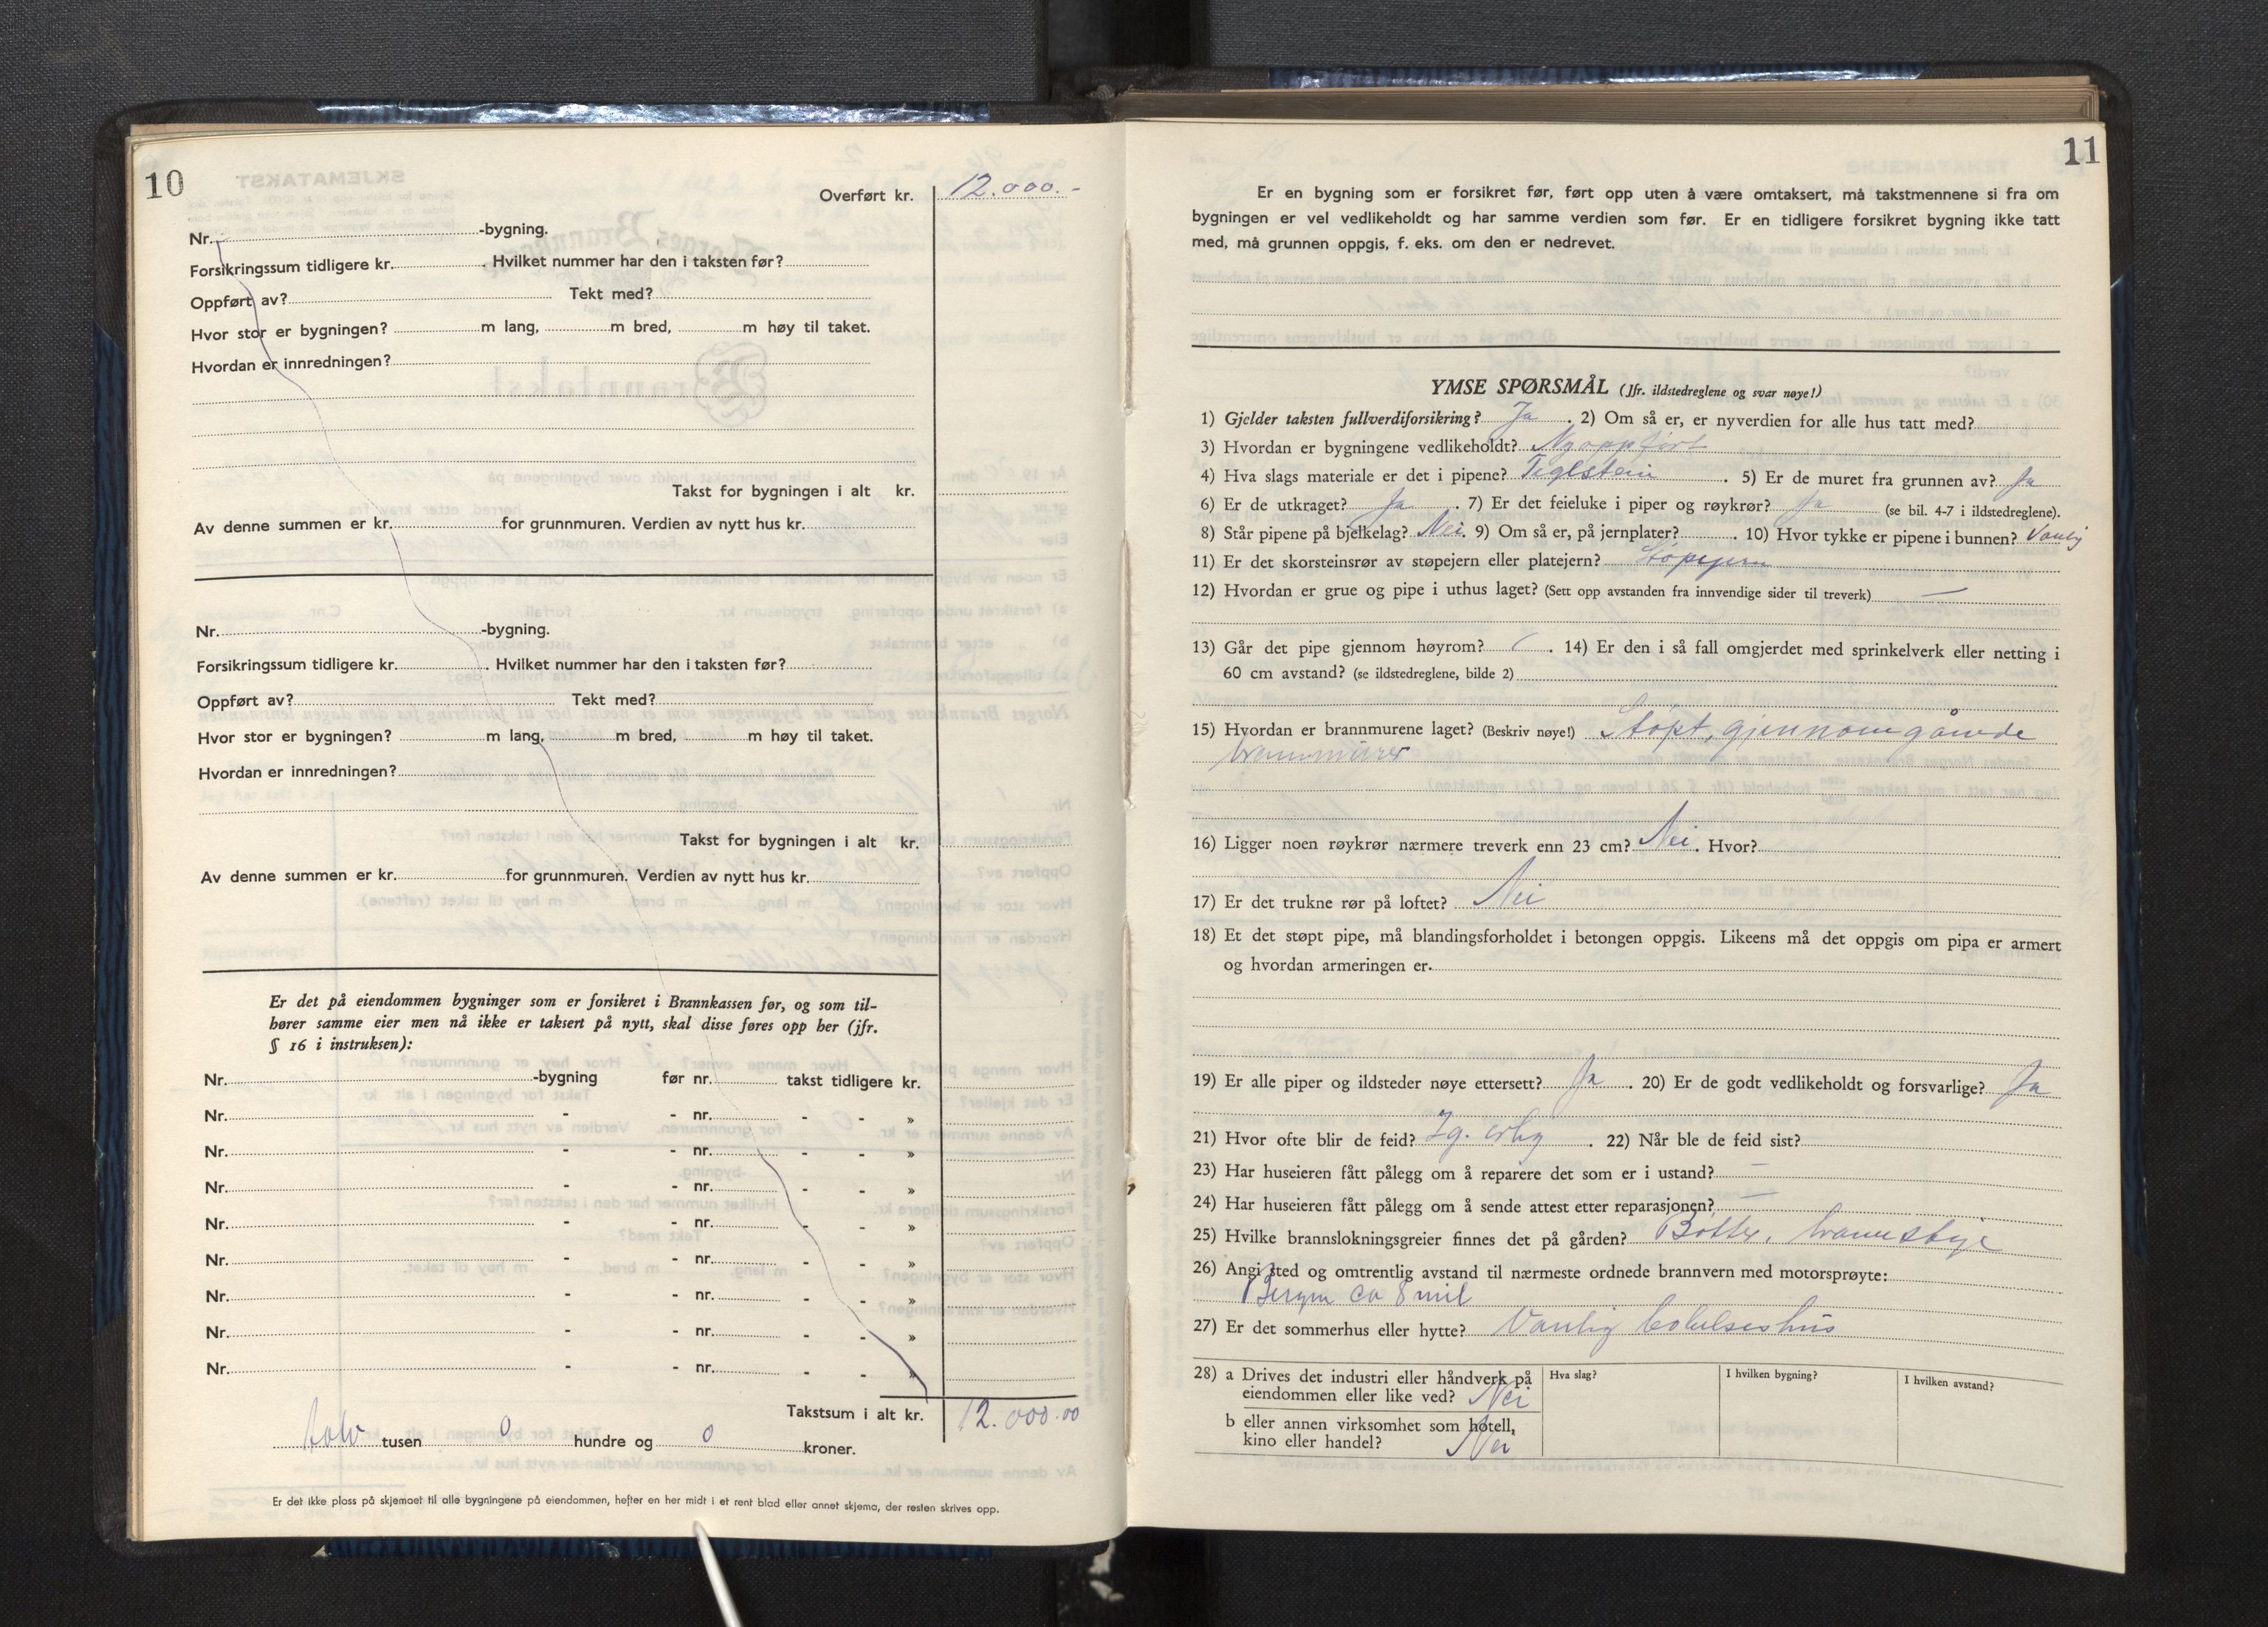 10
Overført kr. 12.000.-
Nr. -bygning.
Forsikringssum tidligere kr. . Hvilket nummer har den i taksten før?
Oppført av? Tekt med?
Hvor stor er bygningen? m lang, m bred, m høy til taket.
Hvordan er innredningen?
Takst for bygningen i alt kr.
Av denne summen er kr. for grunnmuren. Verdien av nytt hus kr.
Nr. -bygning.
Forsikringssum tidligere kr. . Hvilket nummer har den i taksten før?
Oppført av? Tekt med?
Hvor stor er bygningen? m lang, m bred, m høy til taket.
Hvordan er innredningen?
Takst for bygningen i alt kr.
Av denne summen er kr. for grunnmuren. Verdien av nytt hus kr.
Er det på eiendommen bygninger som er forsikret i Brannkassen før, og som til-
hører samme eier men nå ikke er taksert på nytt, skal disse føres opp her (jfr.
§ 16 i instruksen):
Nr. -bygning før nr. takst tidligere kr.
Nr. - - nr. - - »
Nr. - - nr. - - »
Nr. - - nr. - - »
Nr. - - nr. - - »
Nr. - - nr. - - »
Nr. - - nr. - - »
Nr. - - nr. - - »
Nr. - - nr. - - »
Takstsum i alt kr. 12.000.00
tolv tusen 0 hundre og 0 kroner.
Er det ikke plass på skjemaet til alle bygningene på eiendommen, hefter en her midt i et rent blad eller annet skjema, der resten skrives opp.
11
Er en bygning som er forsikret før, ført opp uten å være omtaksert, må takstmennene si fra om
bygningen er vel vedlikeholdt og har samme verdien som før. Er en tidligere forsikret bygning ikke tatt
med, må grunnen oppgis, f. eks. om den er nedrevet.
YMSE SPØRSMÅL (Jfr. ildstedreglene og svar nøye!)
1) Gjelder taksten fullverdiforsikring? Ja . 2) Om så er, er nyverdien for alle hus tatt med?
3) Hvordan er bygningene vedlikeholdt? Nyoppført
4) Hva slags materiale er det i pipene? Teglstein . 5) Er de muret fra grunnen av? Ja
6) Er de utkraget? Ja . 7) Er det feieluke i piper og røykrør? Ja (se bil. 4-7 i ildstedreglene).
8) Står pipene på bjelkelag? Nei. 9) Om så er, på jernplater? . 10) Hvor tykke er pipene i bunnen? Vanlig
11) Er det skorsteinsrør av støpejern eller platejern? Støpejern
12) Hvordan er grue og pipe i uthus laget? (Sett opp avstanden fra innvendige sider til treverk) —
13) Går det pipe gjennom høyrom? . 14) Er den i så fall omgjerdet med sprinkelverk eller netting i
60 cm avstand? (se ildstedreglene, bilde 2)
15) Hvordan er brannmurene laget? (Beskriv nøye!) Støpt, gjennomgående
brannmurer
16) Ligger noen røykrør nærmere treverk enn 23 cm? Nei. Hvor?
17) Er det trukne rør på loftet? Nei
18) Et det støpt pipe, må blandingsforholdet i betongen oppgis. Likeens må det oppgis om pipa er armert
og hvordan armeringen er.
19) Er alle piper og ildsteder nøye ettersett? Ja . 20) Er de godt vedlikeholdt og forsvarlige? Ja
21) Hvor ofte blir de feid? 2 g. årlig . 22) Når ble de feid sist?
23) Har huseieren fått pålegg om å reparere det som er i ustand? —
24) Har huseieren fått pålegg om å sende attest etter reparasjonen? —
25) Hvilke brannslokningsgreier finnes det på gården? Bøtter, brannstige
26) Angi sted og omtrentlig avstand til nærmeste ordnede brannvern med motorsprøyte:
Bergen ca 8 mil
27) Er det sommerhus eller hytte? Vanlig bolelseshus
28) a Drives det industri eller håndverk på
eiendommen eller like ved? Nei
Hva slag?
I hvilken bygning?
I hvilken avstand?
b eller annen virksomhet som hotell,
kino eller handel? Nei